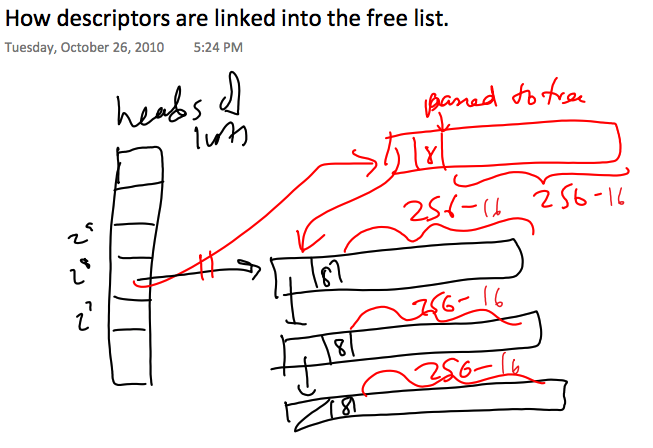 How descriptors are linked into the free list.
Tuesday, October 26, 2010 5:24 PM
heads of
lists
passed to free
8
256-16 256-16
2⁹
2⁸
2⁷
8
256-16
8
256-16
8